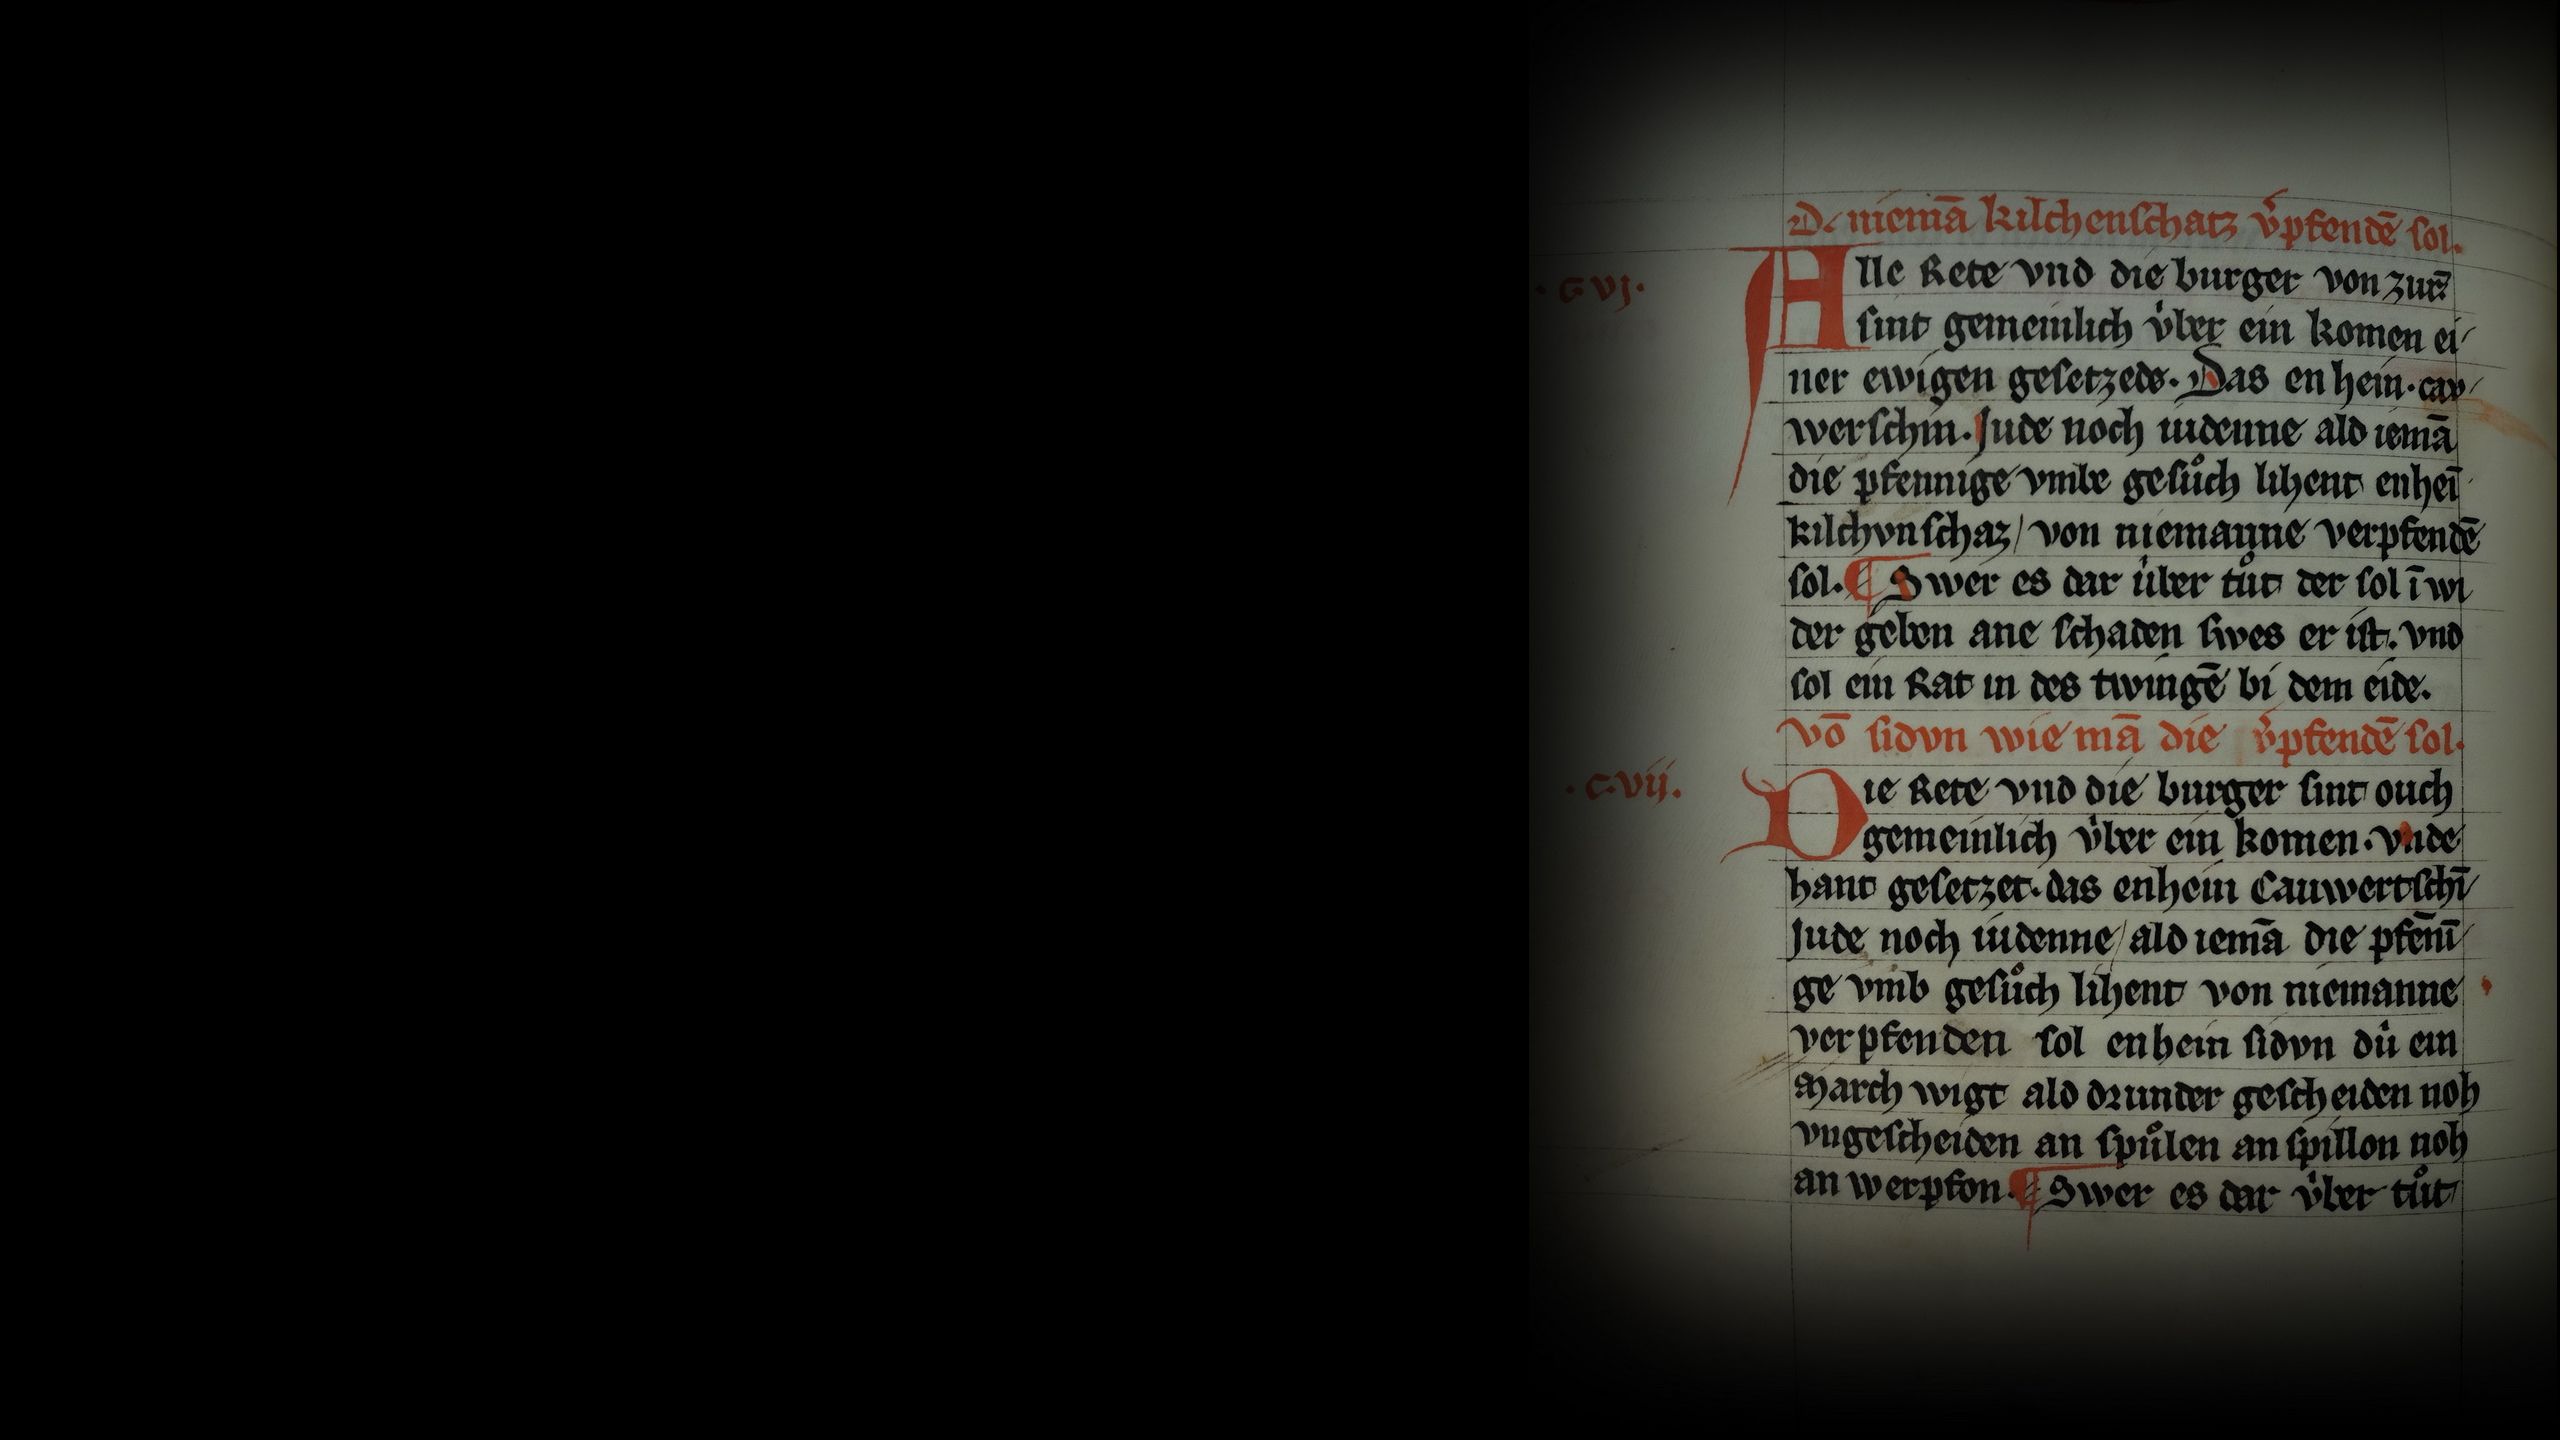 D niemā kilchenschatz v̾pfendē sol.
·C·vj·
Alle Rete vnd die burger von Zur̄
sint gemeinlich v́ber ein komen ei⸗
ner ewigen gesetzede. Das en hein. caw⸗
werschin. Jude noch iudenne ald iemā
die pfennige vmbe gesůch lihent enhei̅
kilchvnschaz/ von niemanne verpfendē
sol. ¶ Swer es dar úber tůt der sol i̅ wi
der geben ane schaden swes er ist. vnd
sol ein Rat in des twingē bi dem eide.
Vō sidvn wie mā die v̾pfendē sol.
·C·vij.
Die Rete vnd die burger sint ouch
gemeinlich v́ber ein komen. vnde
hant gesetzet. das enhein Cauwertschi̅
Jude noch iudenne/ ald iemā die pfēni̅
ge vmb gesůch lihent von niemanne
verpfenden sol enhein sidvn dú ein
March wigt ald drunder gescheiden noh
vngescheiden an spůlen an spillon noh
an werpfon. ¶ Swer es dar v́ber tůt